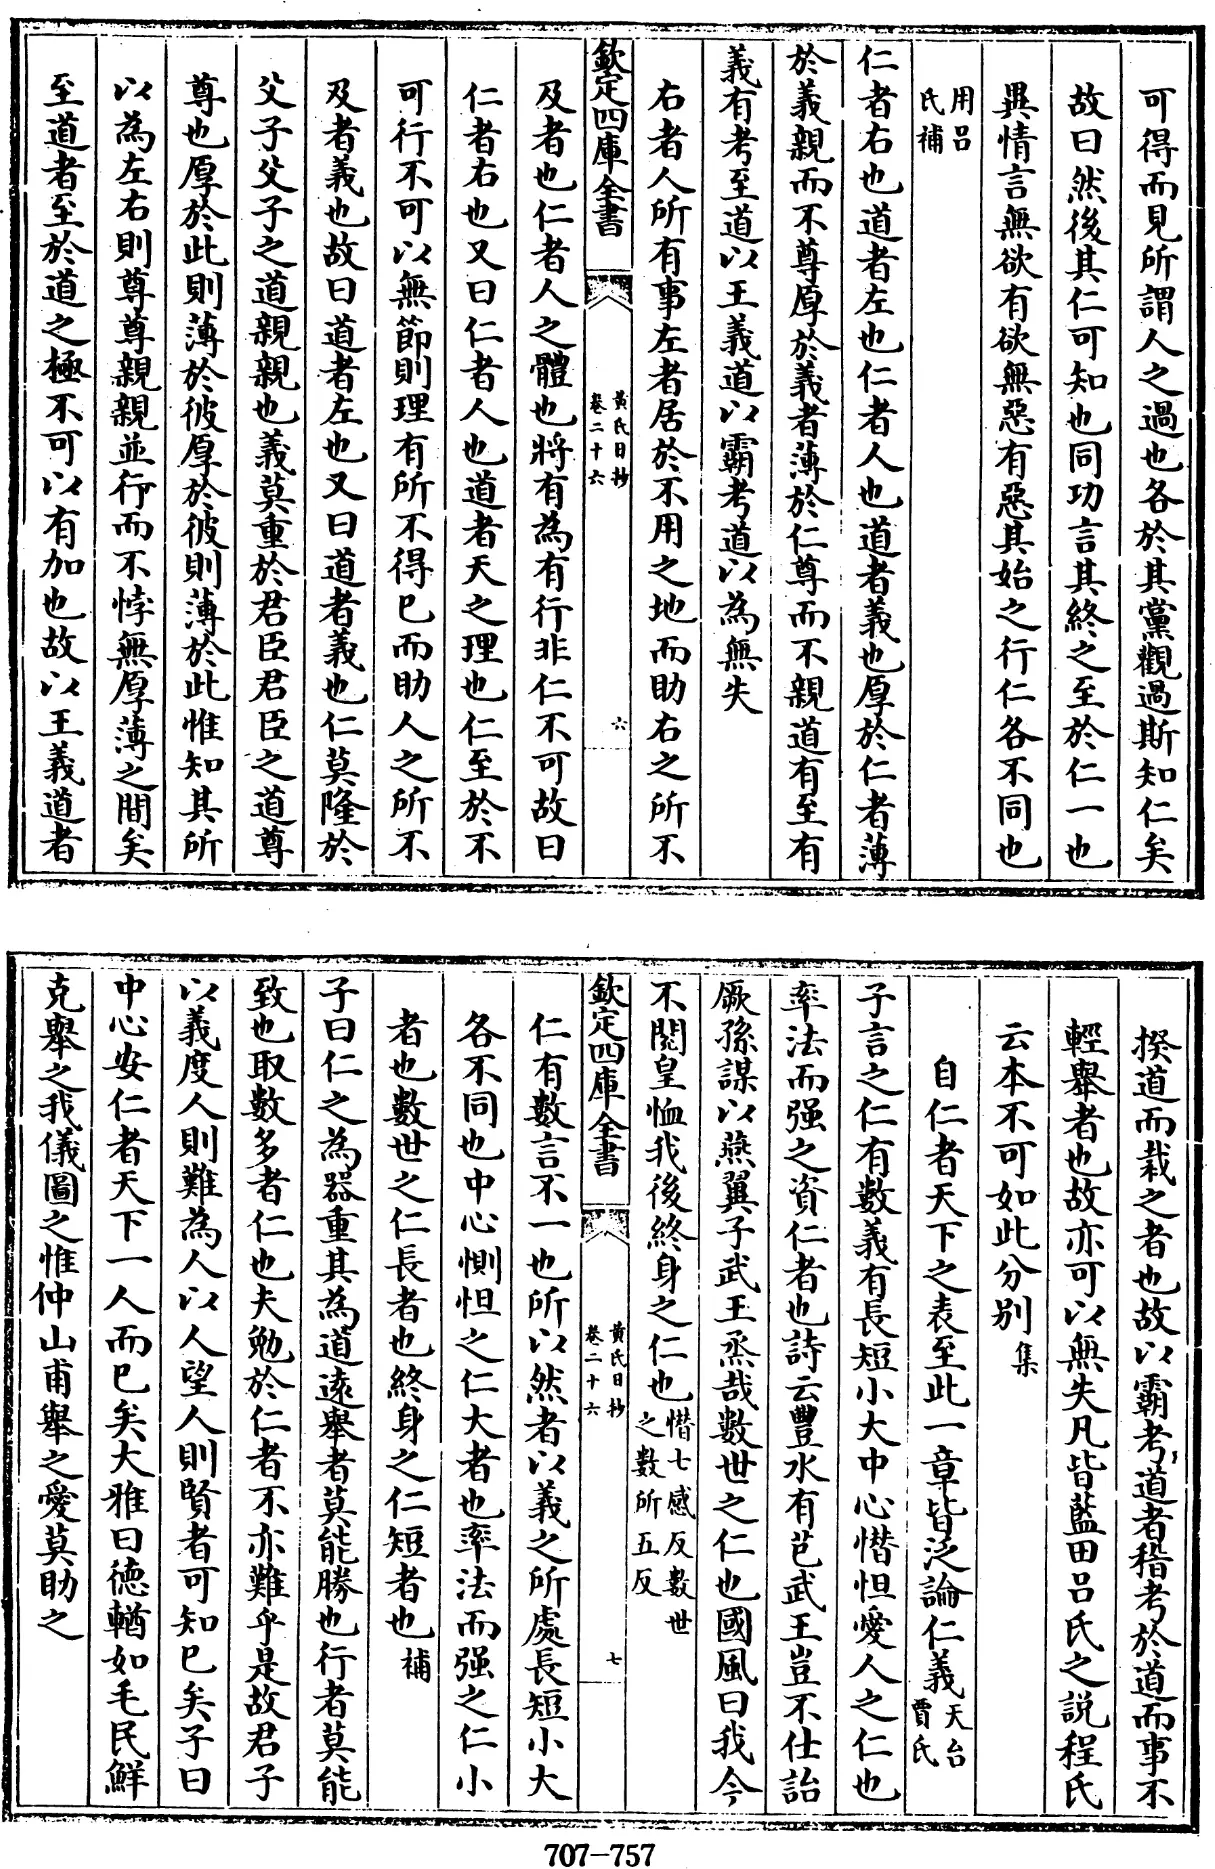 可得而見所謂人之過也各於其黨觀過斯知仁矣
故曰然後其仁可知也同功言其終之至於仁一也
異情言無欲有欲無惡有惡其始之行仁各不同也
用吕
氏補
仁者右也道者左也仁者人也道者義也厚於仁者薄
於義親而不尊厚於義者薄於仁尊而不親道有至有
義有考至道以王義道以霸考道以為無失
右者人所有事左者居於不用之地而助右之所不
欽定四庫全書
黃氏日抄
卷二十六
六
及者也仁者人之體也將有為有行非仁不可故曰
仁者右也又曰仁者人也道者天之理也仁至於不
可行不可以無節則理有所不得已而助人之所不
及者義也故曰道者左也又曰道者義也仁莫隆於
父子父子之道親親也義莫重於君臣君臣之道尊
尊也厚於此則薄於彼厚於彼則薄於此惟知其所
以為左右則尊尊親親並行而不悖無厚薄之間矣
至道者至於道之極不可以有加也故以王義道者
揆道而裁之者也故以霸考道者稽考於道而事不
輕舉者也故亦可以無失凡皆藍田吕氏之説程氏
云本不可如此分别集
自仁者天下之表至此一章皆泛論仁義天台
賈氏
子言之仁有數義有長短小大中心憯怛愛人之仁也
率法而强之資仁者也詩云豐水有芑武王豈不仕詒
厥孫謀以燕翼子武王烝哉數世之仁也國風曰我今
不閱皇恤我後終身之仁也憯七感反數世
之數所五反
欽定四庫全書
黃氏日抄
卷二十六
七
仁有數言不一也所以然者以義之所處長短小大
各不同也中心惻怛之仁大者也率法而强之仁小
者也數世之仁長者也終身之仁短者也補
子曰仁之為器重其為道遠舉者莫能勝也行者莫能
致也取數多者仁也夫勉於仁者不亦難乎是故君子
以義度人則難為人以人望人則賢者可知已矣子曰
中心安仁者天下一人而已矣大雅曰德輶如毛民鮮
克舉之我儀圖之惟仲山甫舉之愛莫助之
707-757